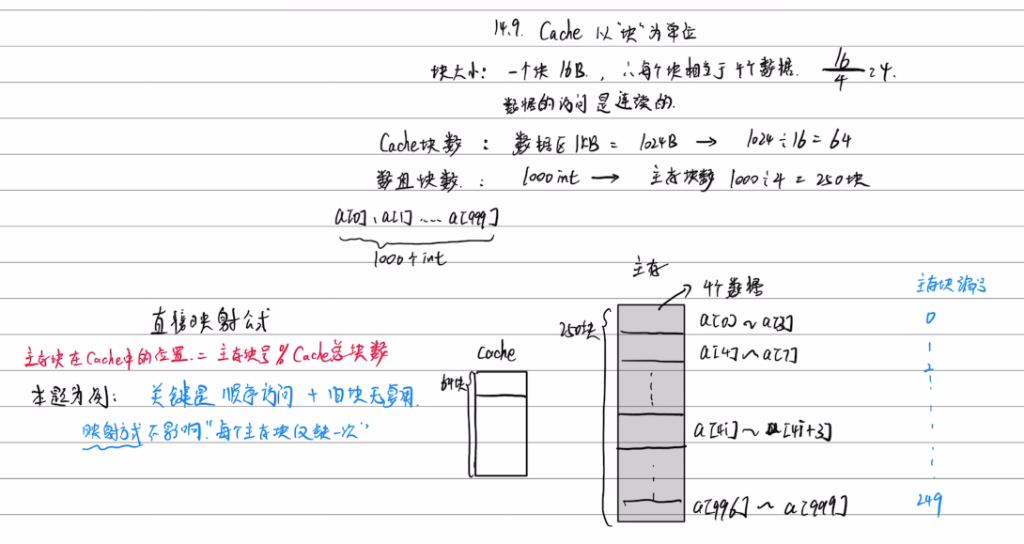 14.9. Cache 以"块"为单位
块大小: 一个块 16B, ∴每个块相当于4个数据. 16/4 = 4.
数据的访问是连续的.
Cache块数 : 数据区1KB = 1024B → 1024÷16 = 64
数组块数 : 1000int → 主存块数 1000÷4 = 250块
a[0], a[1] ..... a[999]
1000个int
主存
4个数据
主存块编号
250块
a[0] ~ a[3]
0
a[4] ~ a[7]
1
2
a[4i] ~ a[4i+3]
a[996] ~ a[999]
249
直接映射公式
主存块在Cache中的位置 = 主存块号 % Cache总块数
Cache
64块
本题为例: 关键是 顺序访问 + 旧块无复用
映射方式不影响"每个主存块仅缺一次"